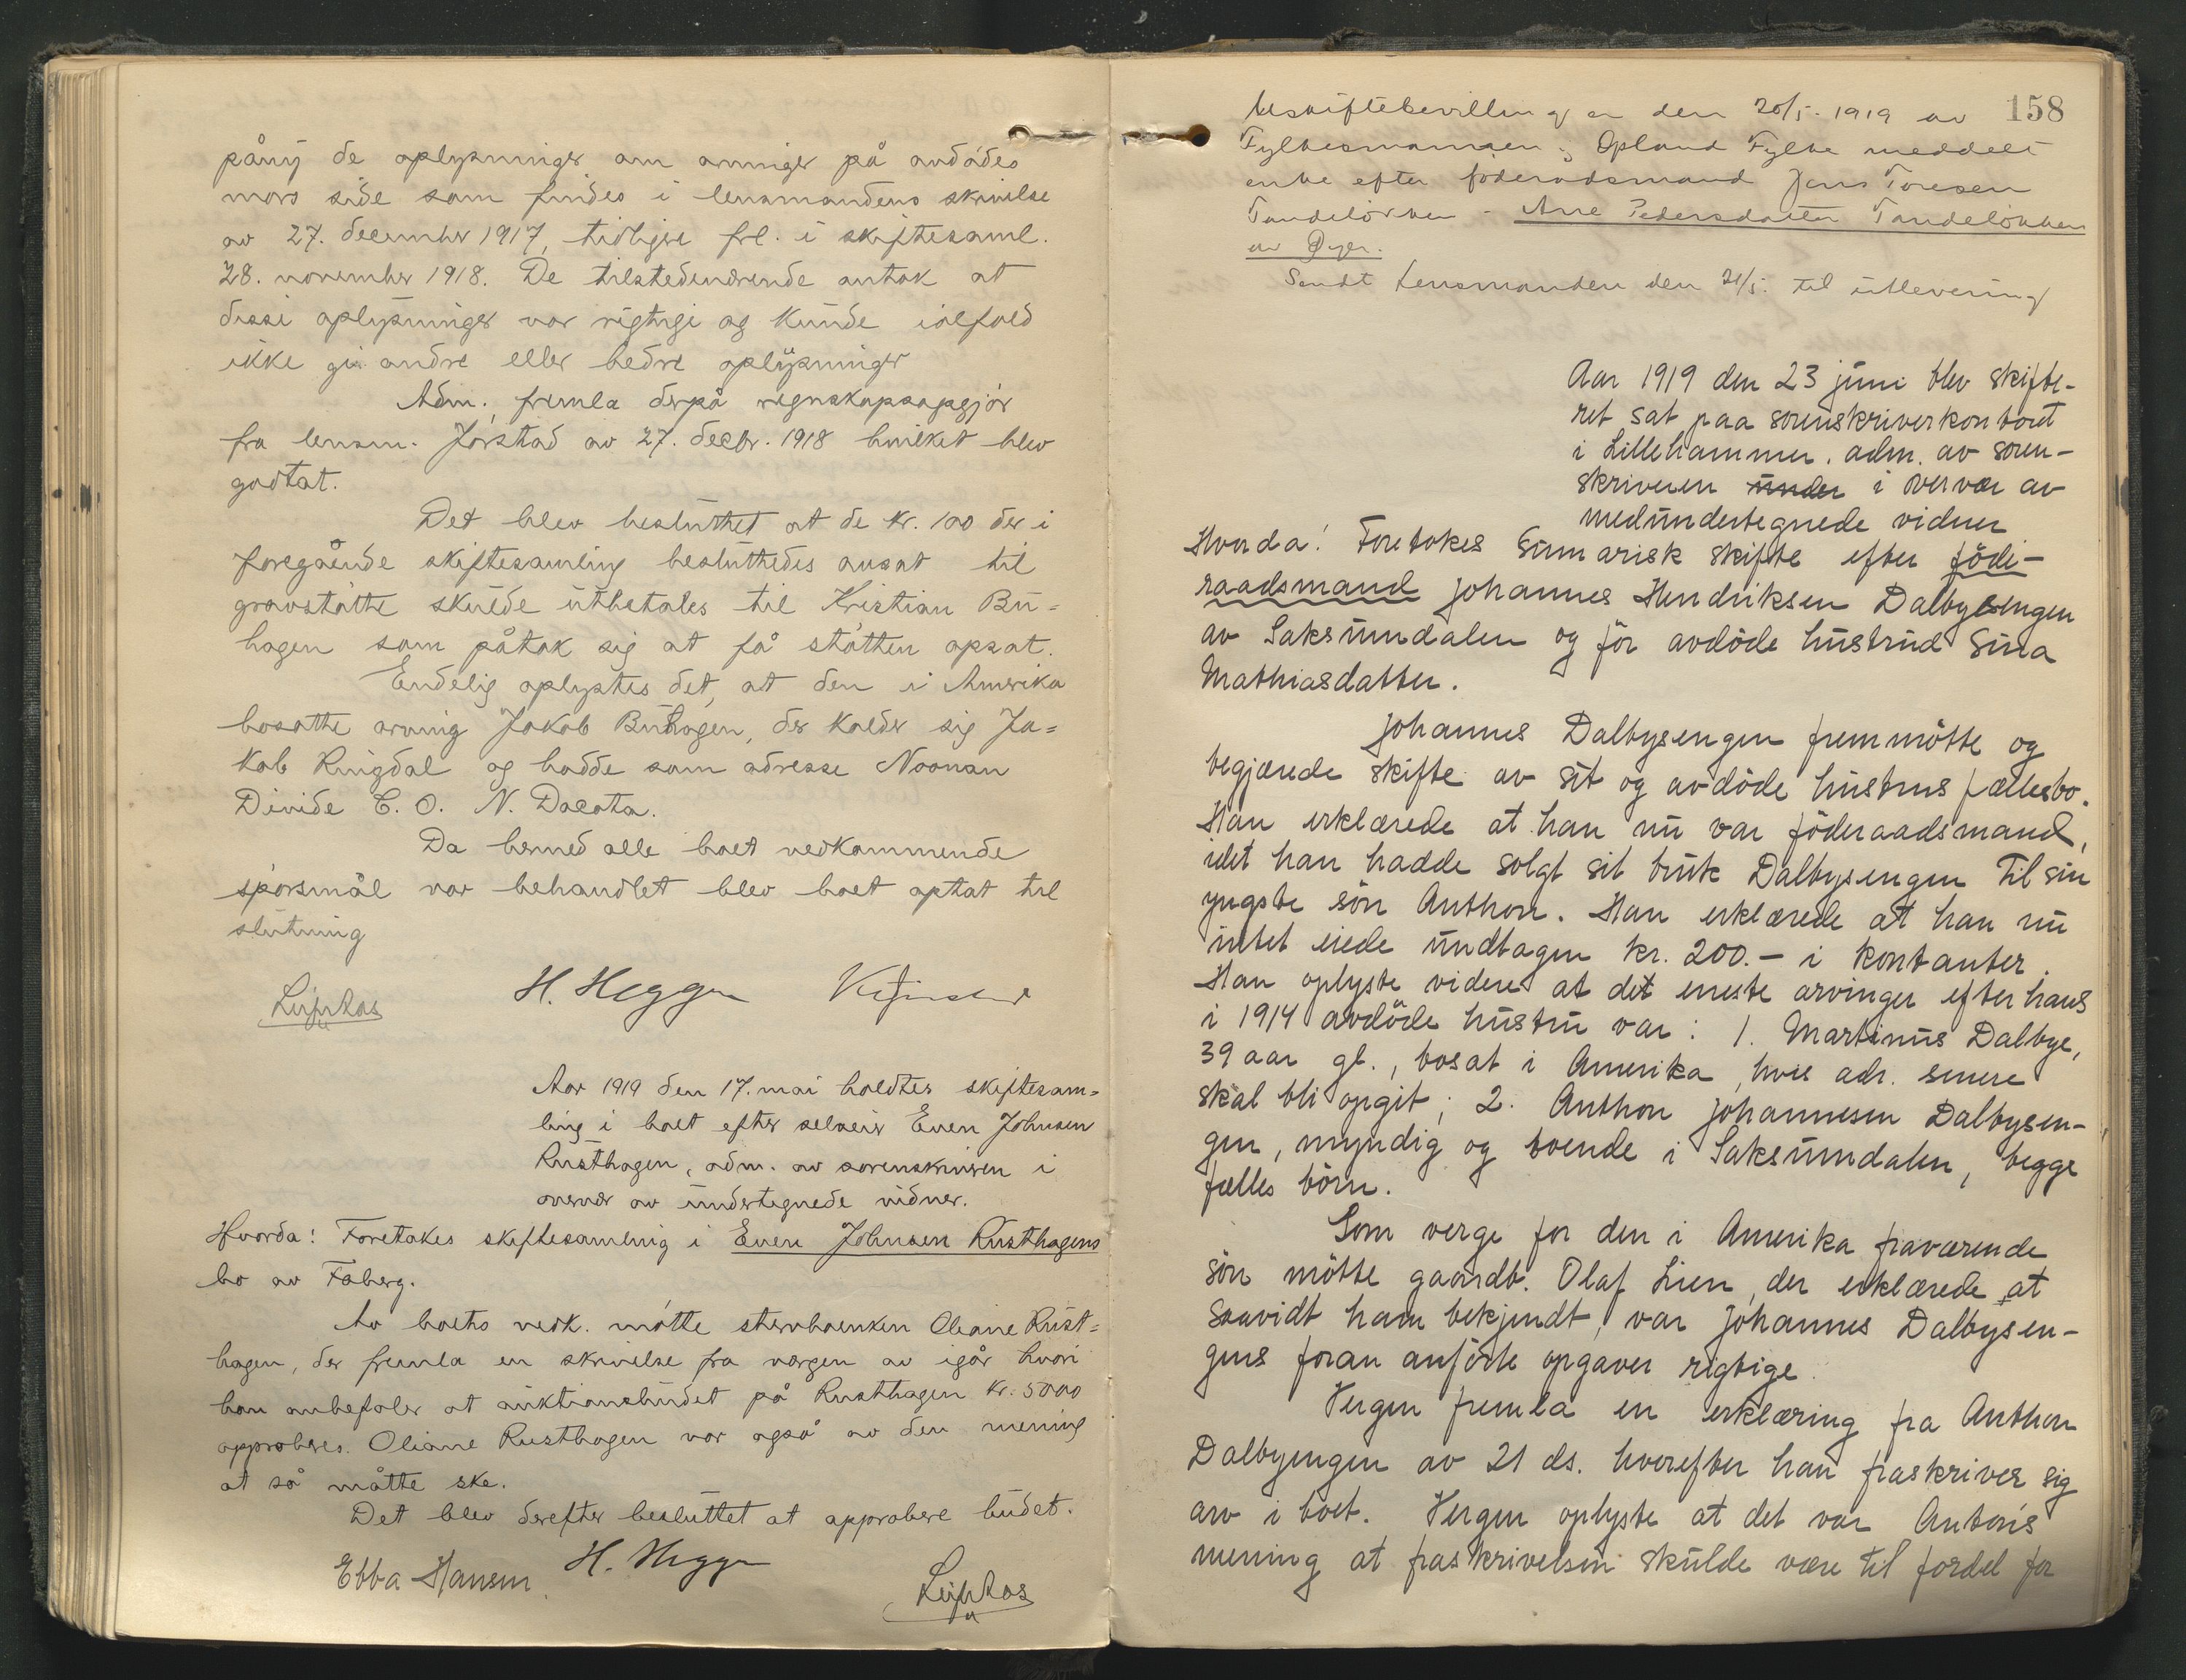 påny de oplysninger om arvinger på avdødes
mors side som findes i lensmandens skrivelse
av 27. december 1917, tidligere frl. i skiftesaml.
28. november 1918. De tilstedeværende antok at
disse oplysninger var rigtige og kunde ialfald
ikke gi andre eller bedre oplysninger
Adm. fremla derpå regnskapsopgjør
fra lensm. Jørstad av 27. decbr. 1918 hvilket blev
godtat.
Det blev besluttet at de kr. 100 der i
foregående skiftesamling besluttedes ansat til
gravstøtte skulde utbetales til Kristian Bu-
hagen som påtok sig at få støtten opsat.
Endelig oplystes det, at den i Amerika
bosatte arving Jakob Buhagen, der kalder sig Ja-
kob Ringdal og hadde som adresse Noonan
Divide C. O. N. Dacota.
Da hermed alle boet vedkommende
spørsmål var behandlet blev boet optat til
slutning
H. Heggen
Aar 1919 den 17. mai holdtes skiftesam-
ling i boet efter selveier Even Johnsen
Rusthagen, adm. av sorenskriveren i
overvær av undertegnede vidner.
Hvorda! Foretokes skiftesamling i Even Johnsen Rusthagens
bo av Faberg.
Av boets vedk. møtte stervboenken Oliane Rust-
hagen, der fremla en skrivelse fra vergen av igår hvori
han anbefaler at auktionsbudet på Rusthagen kr. 5000
approberes. Oliane Rusthagen var også av den mening
at så måtte ske.
Det blev derefter besluttet at approbere budet.
Ebba Hansen H. Heggen
158
Uskiftebevilling er den 20/5. 1919 av
Fylkesmannen i Opland Fylke meddelt
enke efter føderadsmand Jens Toresen
Tandeløkken - Ane Pedersdatter Tandeløkken
av Øyer.
Sendt Lensmanden den 21/5. til utlevering
Aar 1919 den 23 juni blev skifte-
ret sat paa sorenskriverkontoret
i Lillehammer. adm. av soren-
skriveren under i overvær av
medundertegnede vidner
Hvorda! Foretokes Sumarisk skifte efter föde-
raadsmand Johannes Hendriksen Dalbysengen
av Saksumdalen og för avdöde hustrud Sina
Mathiasdatter.
Johannes Dalbysengen fremmötte og
begjærede skifte av sit og avdöde hustrus fællesbo.
Han erklærede at han nu var föderaadsmand,
idet han hadde solgt sit bruk Dalbysengen til sin
yngste sön Anthon. Han erklærede at han nu
intet eiede undtagen kr. 200.- i kontanter.
Han oplyste videre at det eneste arvinger efter hans
i 1914 avdöde hustru var: 1. Martinus Dalbye,
39 aar gl., bosat i Amerika, hvis adr. senere
skal bli opgit; 2. Anthon Johannesen Dalbysen-
gen, myndig og boende i Saksumdalen, begge
fælles börn.
Som verge for den i Amerika fraværende
sön mötte gaardb. Olaf Lien, der erklærede at
saavidt ham bekjendt, var Johannes Dalbysen-
gens foran anförte opgaver rigtige.
Vergen fremla en erklæring fra Anthon
Dalbyengen av 21 ds. hvorefter han fraskriver sig
arv i boet. Vergen oplyste at det var Anton's
mening at fraskrivelsen skulde være til fordel for